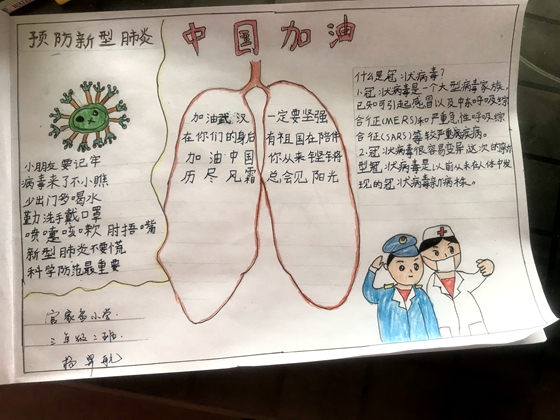 预防新型肺炎
中国加油
小朋友要记牢
病毒来了不小瞧
少出门多喝水
勤洗手戴口罩
喷嚏咳欶肘捂嘴
新型肺炎不要慌
科学防范最重要
加油武汉
在你们的身后
加油中国
历尽风霜
一定要坚强
有祖国在陪伴
你从来车坚车将
总会见阳光
什么是冠状病毒?
1.冠状病毒是一个大型病毒家族,
已知可引起感冒以及中东呼吸综
合征(MERS)和严重急性呼吸综
合征(SARS)等较严重疾病。
2.冠状病毒很容易变异这次的新
型冠状病毒是以前从未在人体中发
现的冠状病毒新病株。
官家岛小学
三年级二班
杨昇航